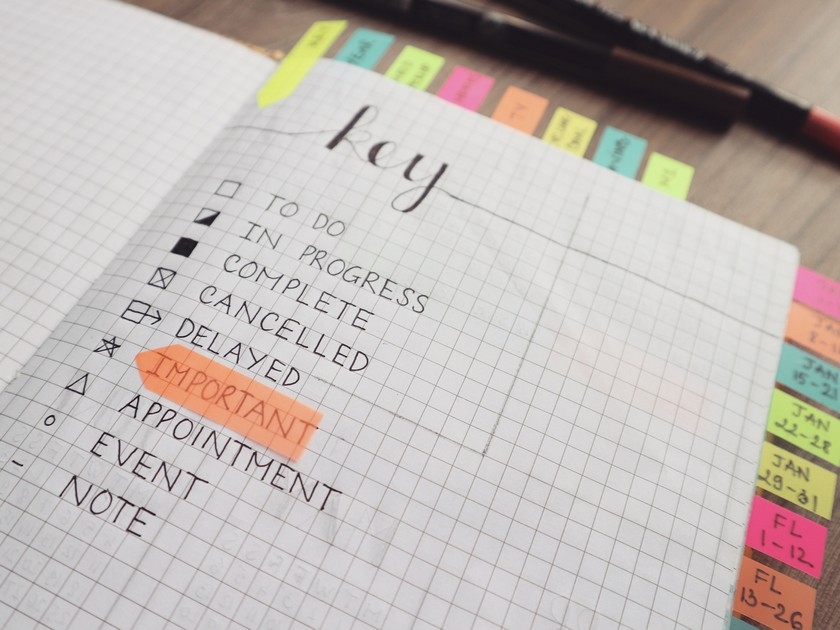 key
TO DO
IN PROGRESS
COMPLETE
CANCELLED
DELAYED
IMPORTANT
APPOINTMENT
EVENT
NOTE
JAN
15-21
JAN
22-28
JAN
29-31
FL
1-12
FL
13-26